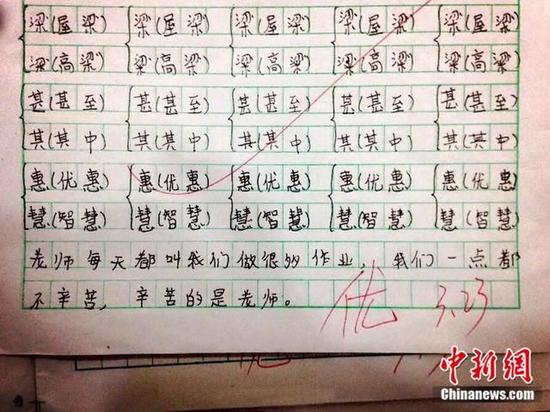 梁(屋梁) 梁(屋梁) 梁(屋梁) 梁(屋梁) 梁(屋梁)
粱(高粱) 粱(高粱) 粱(高粱) 粱(高粱) 粱(高粱)
甚(甚至) 甚(甚至) 甚(甚至) 甚(甚至) 甚(甚至)
其(其中) 其(其中) 其(其中) 其(其中) 其(其中)
惠(优惠) 惠(优惠) 惠(优惠) 惠(优惠) 惠(优惠)
慧(智慧) 慧(智慧) 慧(智慧) 慧(智慧) 慧(智慧)
老师每天都叫我们做很多作业，我们一点都
不辛苦，辛苦的是老师。
优 3.23
中新网
Chinanews.com